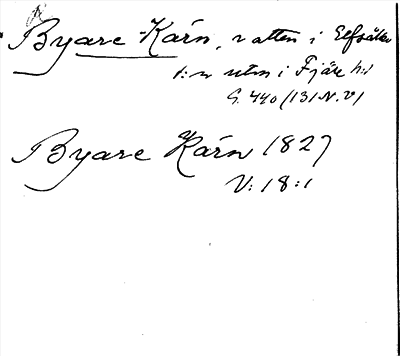 Byare Kärn, vatten i Elfsåker
s:n utm i Fjäre h:d
G. 440 (131 N.V)
Byare Kärn 1827
V: 18:1